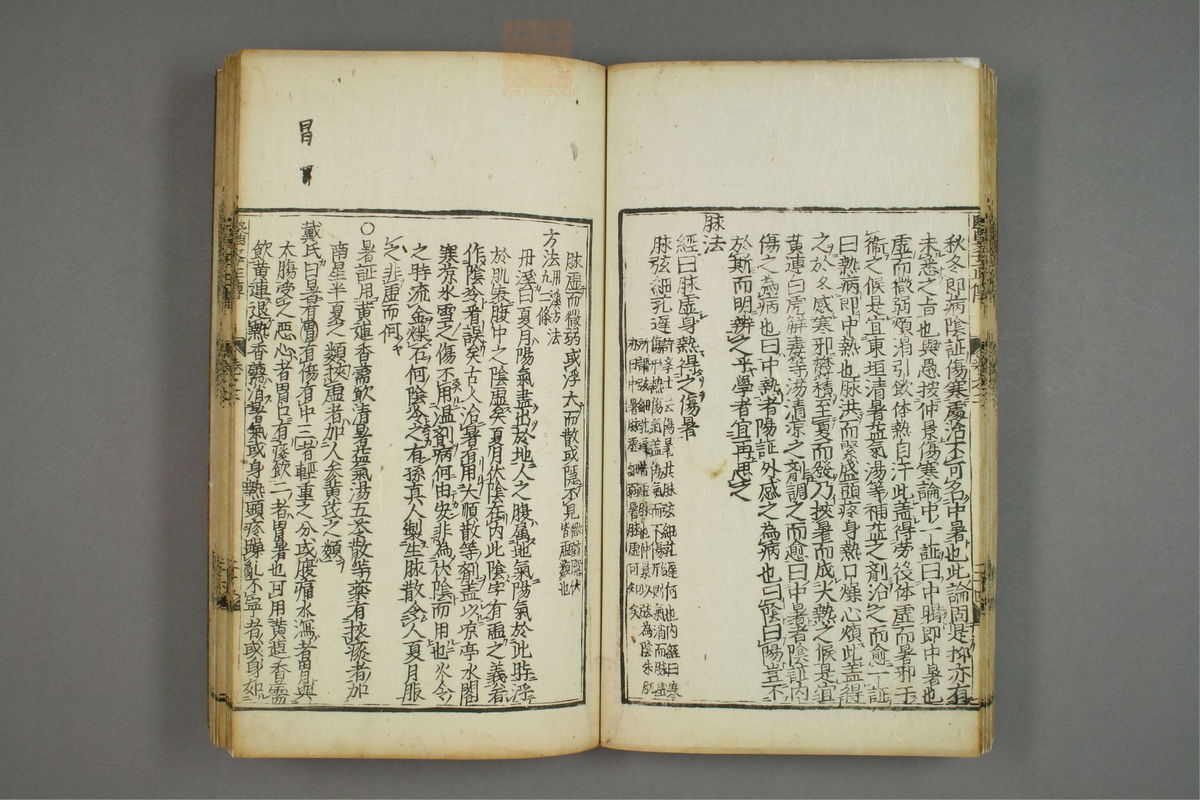 秋冬即病陰証傷寒處治不可名中暑也此論固是抑亦有
未悉之旨也與愚按仲景傷寒論中一証曰中暍即中暑也
虛而微弱煩渴引飲体熱自汗此盖得勞役体虛而暑邪干
衞之候是宜東垣清暑益氣湯等補益之剤治之而愈一証
曰熱病即中熱也脉洪而緊盛頭疼身熱口燥心煩此盖得
之於冬感寒邪欝積至夏而發乃挾暑而成大熱之候是宜
黄連白虎解毒等湯清凉之剤調之而愈曰中暑者陰証内
傷之為病也曰中熱者陽証外感之為病也曰陰曰陽豈不
於斯而明辨之乎學者宜再思之
脉法
經曰脉虛身熱得之傷暑
脉弦細芤遲
許學士云傷暑其脉弦細芤遲何也内經曰寒
傷形熱傷氣盖傷氣而不傷形則氣消而脉虛
所謂弦細芤遲皆虛脉也仲景以弦為陰朱肱
亦曰中暑脉虛細弱暑脉虛可知矣
脉虛而微弱或浮大而散或隱不見
微弱隱伏
皆虛類也
方法
用溪方法
九二條
丹溪曰夏月陽氣盡出於地人之腹属地氣陽氣於此時浮
於肌表腹中之陰虛矣夏月伏陰在内此陰字有虛之義若
作陰冷看誤矣古人治暑有用大順散等剤盖以凉亭水閣
寒凉氷雪之傷不用温剤病何由安非為伏陰而用也火令
之時流金爍石何陰冷之有孫真人製生脉散令人夏月服
之非虛而何
○暑証用黄連香薷飲清暑益氣湯五苓散等藥有挾痰者加
南星半夏之類挾虛者加人參黄芪之類
戴氏曰暑有冒有傷有中三者輕重之分或腹痛水瀉者胃與
太腸受之惡心者胃口有痰飲二者冒暑也可用黄連香薷
飲黄連退熱香薷消暑氣或身熱頭疼躁亂不寧者或身如